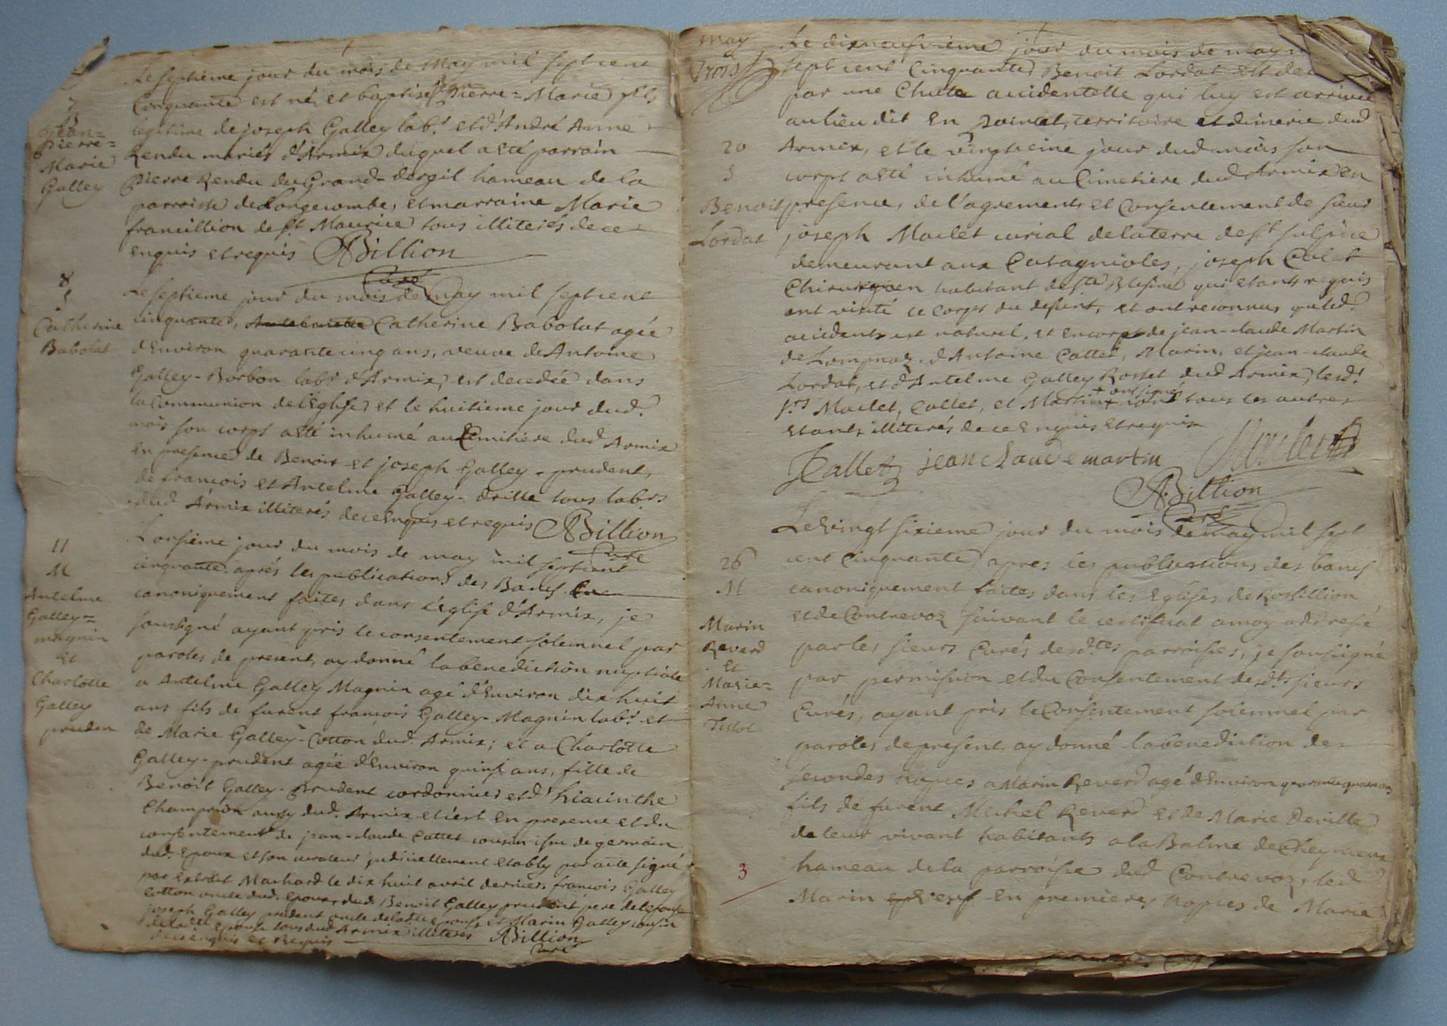 7
B
Jean=
Pierre=
Marie
Galley
Le septieme jour du mois de May mil sept cent
Cinquante est né et baptisé Pierre=Marie fils
legitime de joseph Galley labr et d'André Anne
Rendu mariés d'Armix duquel a eté parrain
Pierre Rendu du Grand-dergil hameau de la
parroisse de Longecombe, et marraine Marie
francillion de St Maurice tous illiterés de ce
enquis et requis ABillion
Curé
8
s
Catherine
Babolat
Le septieme jour du mois de may mil sept cent
cinquante, Catherine Babolat agée
d'Environ quarante cinq ans, veuve de Antoine
Galley-Borbon labr d'Armix, est decedée dans
la communion de l'Eglise et le huitieme jour dud.
mois son corps a eté inhumé au Cimitiere dud Armix
en presence de Benoit et joseph Galley-prudent,
de francois et Antelme Galley-drille tous labrs
dud Armix illiterés de ce Enquis et requis ABillion
Curé
11
M
Antelme
Galley=
magnin
et
Charlotte
Galley
pruden
L'onsième jour du mois de may mil sept cent
cinquante aprés les publications des Bancs
canoniquement faites dans l'eglise d'Armix, je
soussigné ayant pris le consentement solemnel par
paroles de present, ay donné la benediction nuptiale
a Antelme Galley Magnin agé d'Environ dix huit
ans fils de furent francois Galley-Magnin labr et
de Marie Galley-Cotton dud. Armix; et a Charlotte
Galley-prudent agée d'Environ quinse ans, fille de
Benoit Galley-Prudent cordonnier et d' hiacinthe
Champion aussy dud. Armix et c'est en presence et du
consentement de jean-claude Cattet cousin issu de germain
dud. Epoux et son curateur judiciellement etably par acte signé
par Extrait Machard le dix huit avril dernier, francois Galley
Cotton oncle dud. Epoux, dud Benoit Galley prudent pere de l'epouse
joseph Galley prudent oncle de ladte Epouse et Marin Galley cousin
de ladte Epouse tous dud Armix illiterés ABillion
de ce enquis et Requis Curé
may
20
s
Benoit
Lordat
Le dixneufvieme jour du mois de may
sept cent Cinquante Benoit Lordat est
par une Chute accidentelle qui luy est arrivée
au lieu dit En , territoire et dimerie dud
Armix, et le vingtieme jour dud mois son
corps a eté inhumé au Cimetiere dud Armix en
presence, de l'agrement et Consentement de sieur
joseph Maclet curial de la terre de St sulpice
demeurant aux Catagnioles, joseph Calet
Chirurgien habitant de St Blesine qui etants requis
ont visité le corps du defunt, et ont reconnus que led.
accident est naturel, et encor de jean-claude Martin
de Lompnaz, d'Antoine Cattet, Marin, et jean-claude
Lordat, et d'Antelme Galley Rosset dud Armix, lesdt
srs Maclet, Callet, et Martin ont signé tous les autres
etants illiterés de ce enquis et requis
JCallet jean claude martin Maclet
ABillion
Curé
26
M
Marin
Reverd
Et
Marie=
Anne
Tissot
Le Vingt sixieme jour du mois de may mil sept
cent Cinquante apres les publications des bancs
canoniquement faites dans les Eglises de Rossillion
et de Contrevoz suivant le certificat a moy addressé
par les sieurs Curés desdtes parroisses, je soussigné
par permission et du Consentement desdts sieurs
Curés, ayant pris le Consentement solemnel par
paroles de present ay donné la benediction de
secondes nopces a Marin Reverd agé d'Environ quarante
fils de furent Michel Reverd et de Marie Deville
de leur vivant habitants a la Balme de Cheynieux
hameau de la parroisse dud Contrevoz, led
Marin veuf en premieres nopces de Marie
3